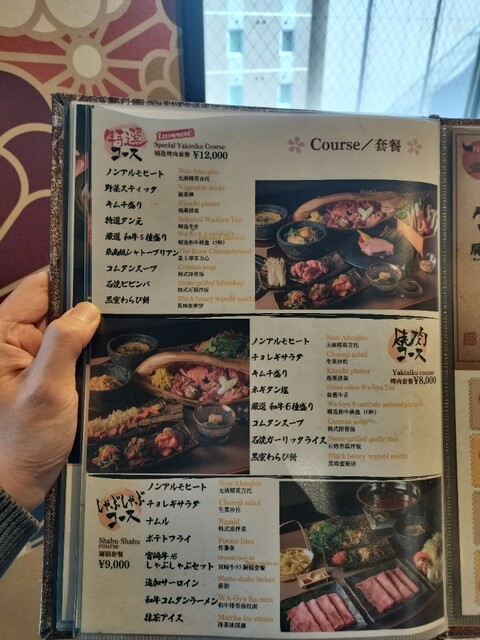 Course／套餐
特選
コース
Recommend!
Special Yakiniku Course
精选烤肉套餐 ¥12,000
ノンアルモヒート
Non-Almojito
无酒精莫吉托
野菜スティック
Vegetable sticks
蔬菜棒
キムチ盛り
Kimchi platter
泡菜拼盘
特選タン元
Selected Wa Gyu Tan
精选牛舌
厳選 和牛5種盛り
精选和牛拼盘（5种）
最高級シャトーブリアン
最上等里脊心
コムタンスープ
Comtan soup
韩式排骨汤
石焼ビビンバ
Stone-grilled bibimbap
韩式石锅拌饭
黒蜜わらび餅
Black honey warabi mochi
黑蜂蜜蕨饼
焼肉
コース
Yakiniku course
烤肉套餐 ¥8,000
ノンアルモヒート
Non-Almojito
无酒精莫吉托
チョレギサラダ
Choregi salad
生菜沙拉
キムチ盛り
Kimchi platter
泡菜拼盘
ネギタン塩
Green onion Wa Gyu Tan
葱盐牛舌
厳選 和牛6種盛り
Wa Gyu 6 carefully selected platter
精选和牛拼盘（6种）
コムタンスープ
Comtan soup
韩式排骨汤
石焼ガーリックライス
Stone-grilled garlic rice
石烤蒜蓉拌饭
黒蜜わらび餅
Black honey warabi mochi
黑蜂蜜蕨饼
しゃぶしゃぶ
コース
Shabu-Shabu
course
涮锅套餐
¥9,000
ノンアルモヒート
Non-Almojito
无酒精莫吉托
チョレギサラダ
Choregi salad
生菜沙拉
ナムル
Namul
韩式凉拌菜
ポテトフライ
Potato fries
炸薯条
宮崎牛A5
しゃぶしゃぶセット
宫崎牛A5 涮锅套餐
追加サーロイン
Shabu-shabu Sirloin
和牛コムタンラーメン
WA-Gyu Ra-men
和牛排骨汤拉面
抹茶アイス
Matcha ice cream
抹茶冰淇淋